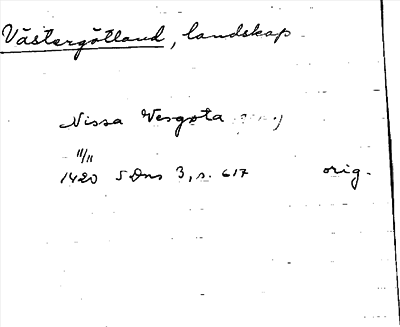 Västergötland, landskap
Nissa Vesgøta
11/11
1420 SDns 3, s. 617 orig.